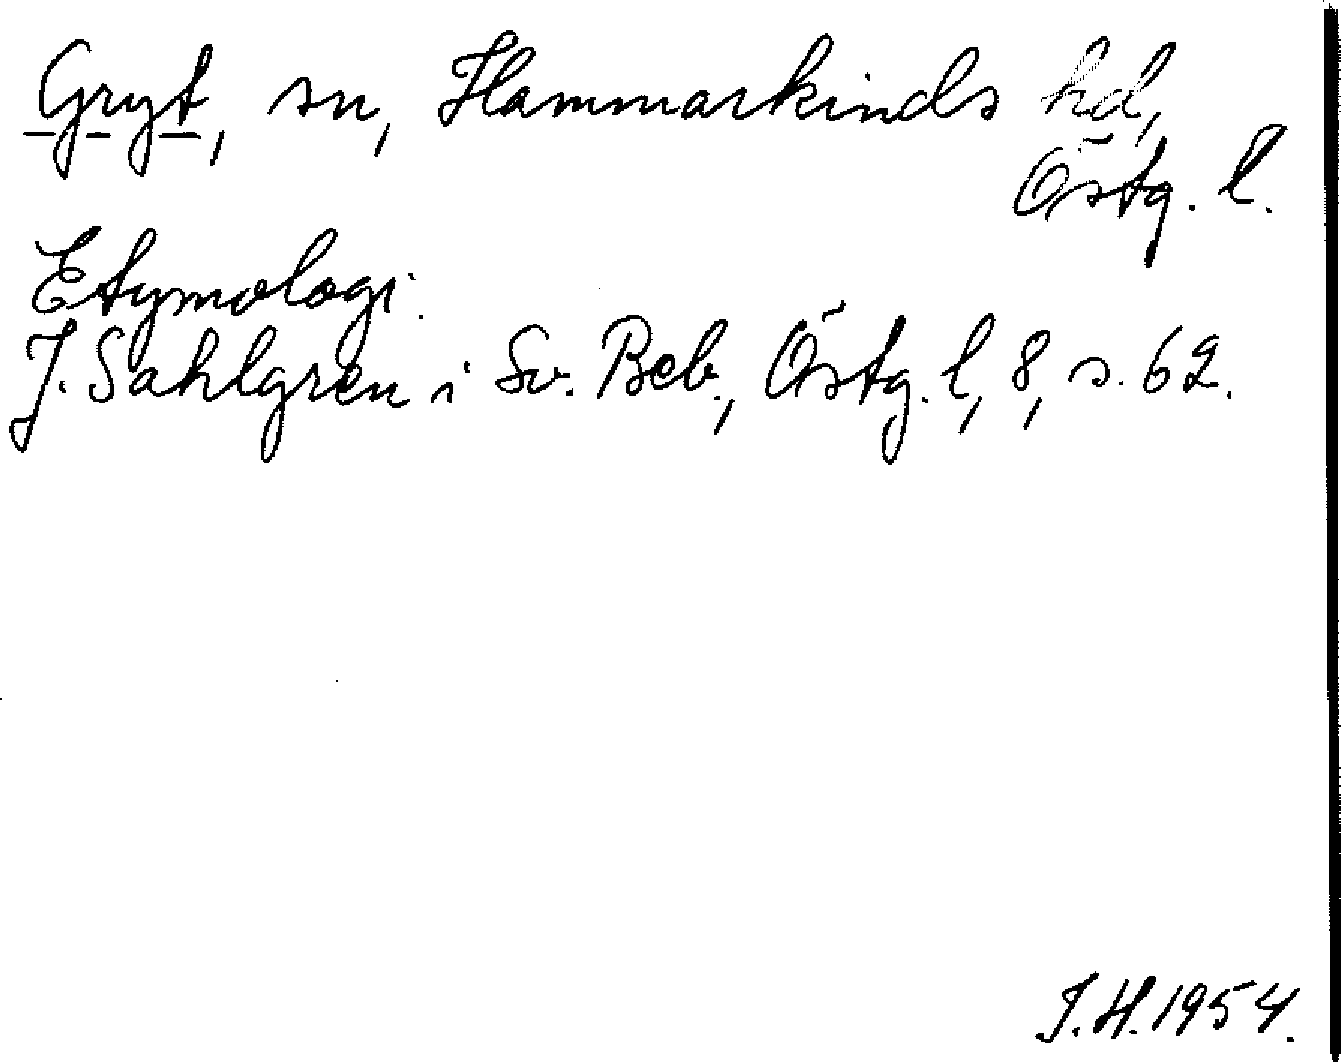 Gryt, sn, Hammarkinds hd,
Östg. l.
Etymologi.
J. Sahlgren i Sv. Beb., Östg. l, 8, s. 62.
J.H. 1954.